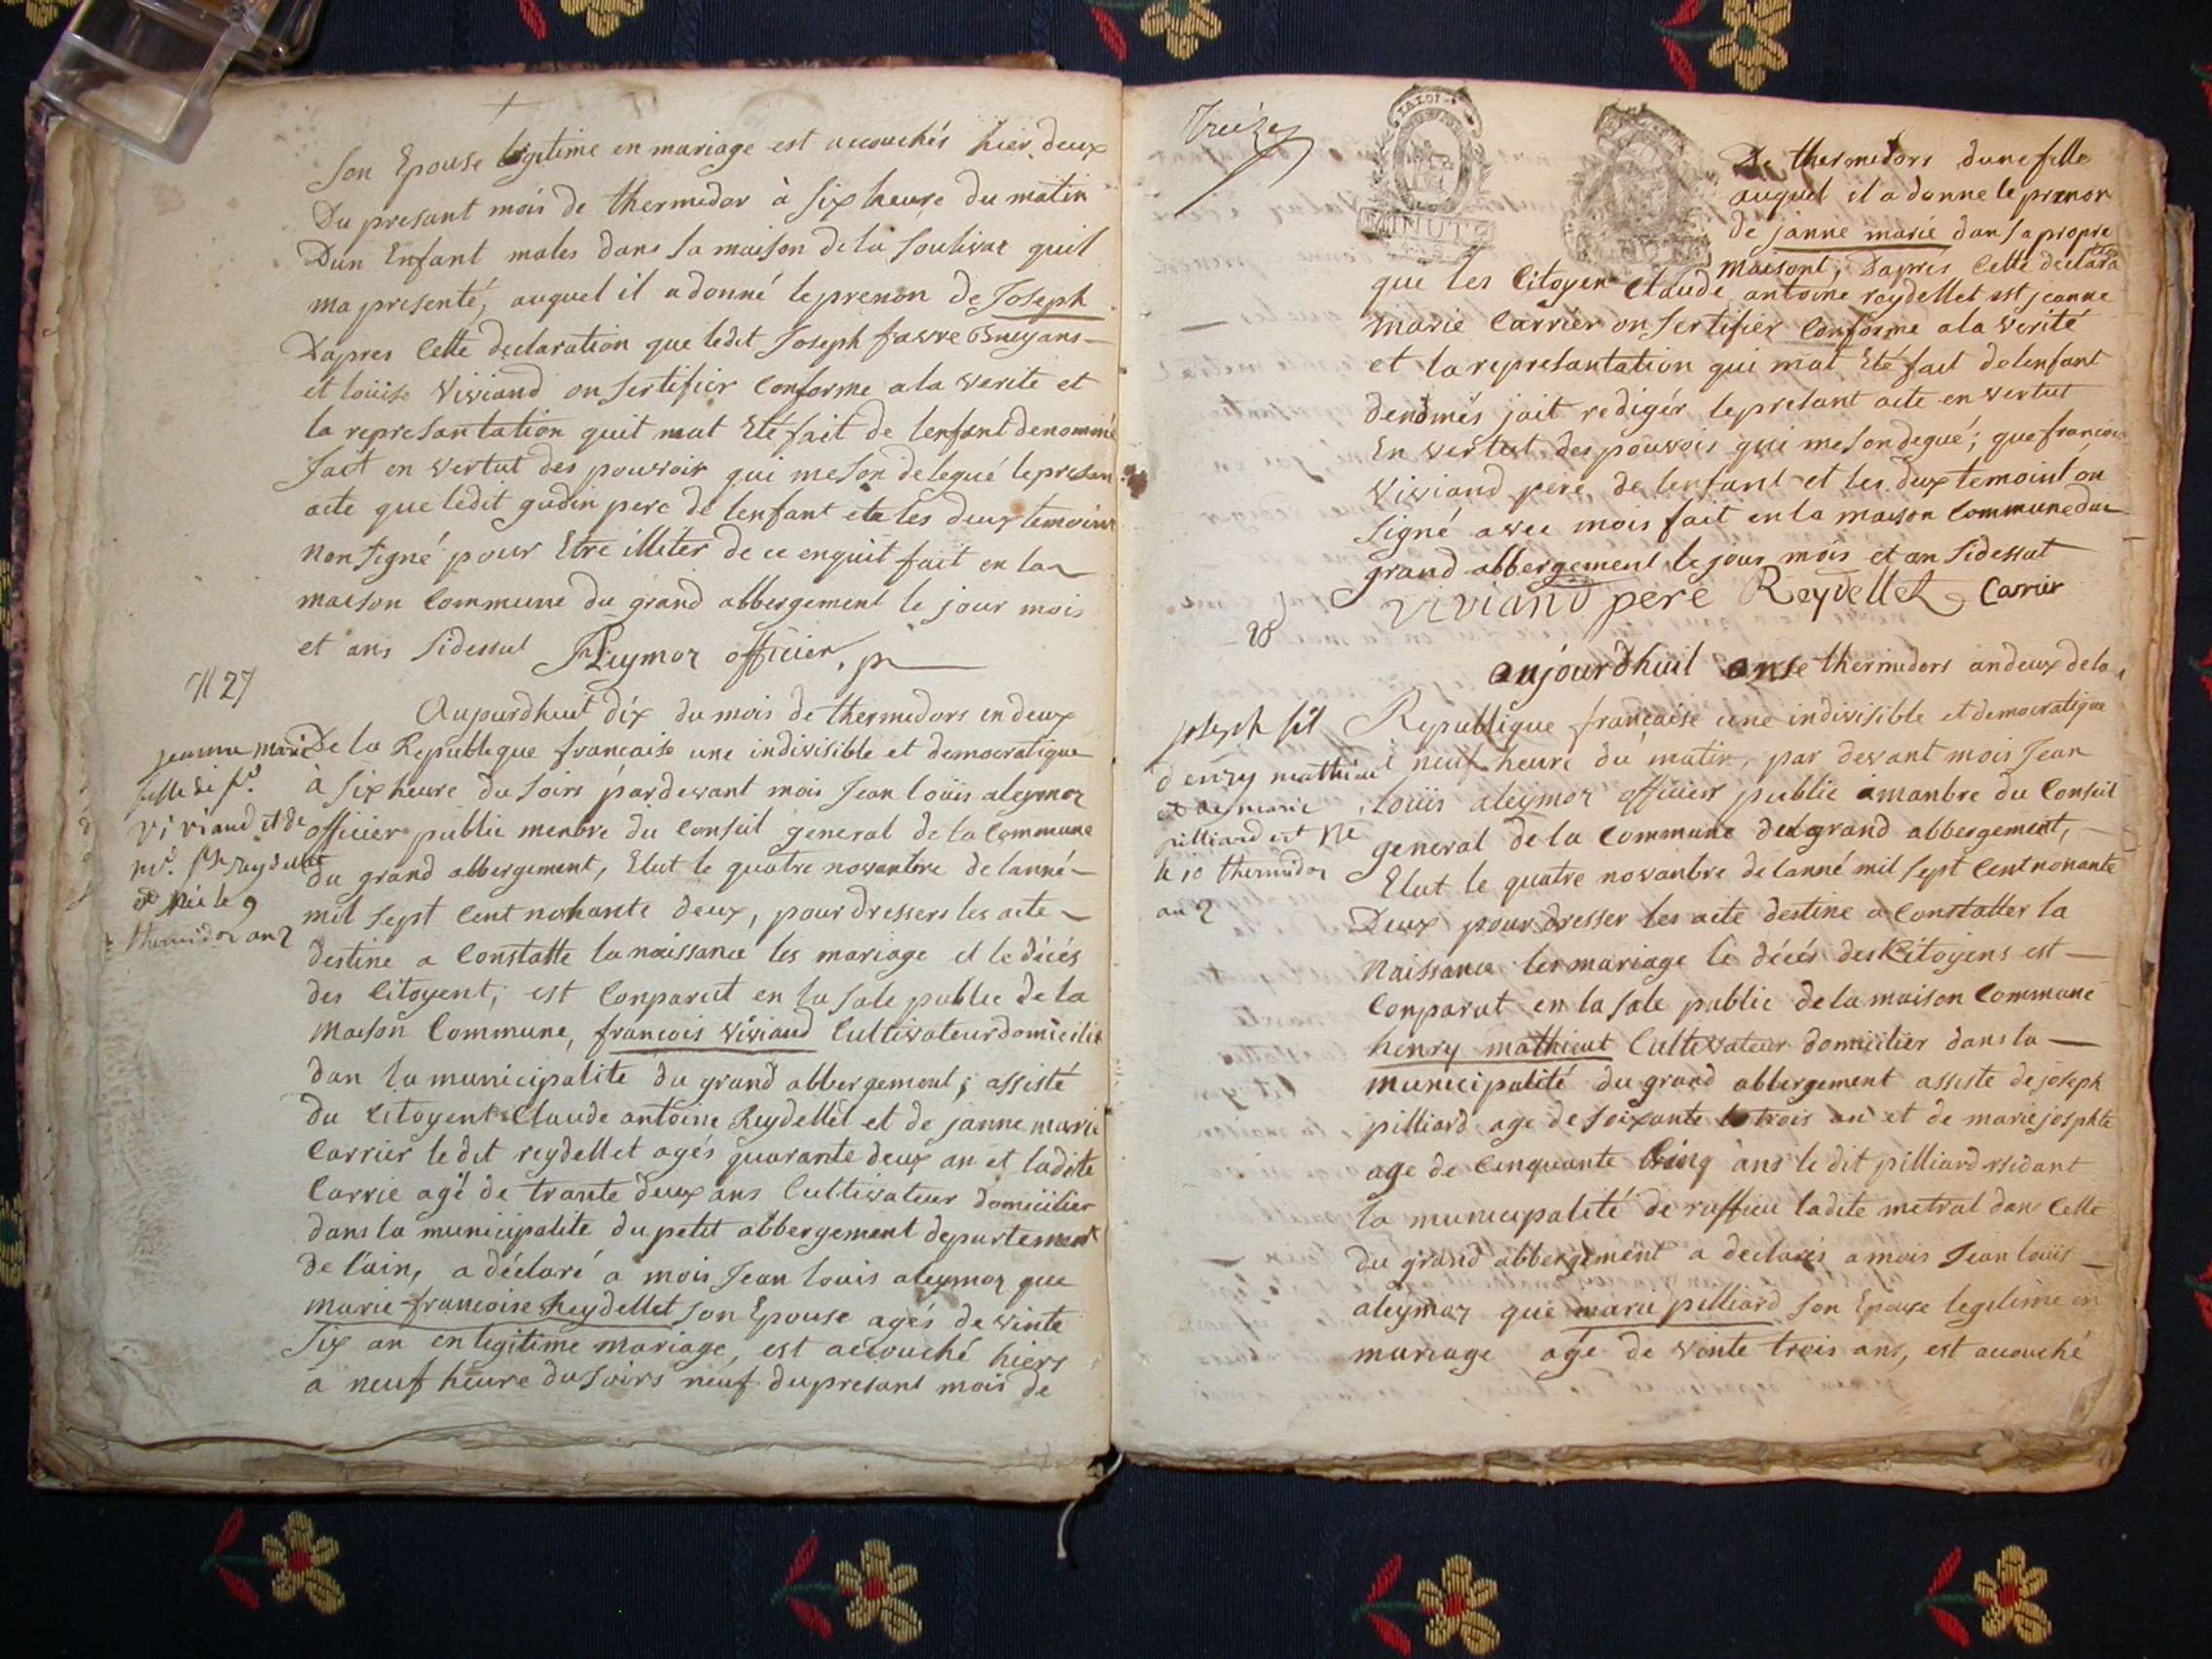 Son Epouse legitime en mariage est accouchés hier deux
Du presant mois de thermidor à Six heure du matin
Dun Enfant males dans Sa maison de la Soulivat quil
ma presenté, auquel il a donné le prenon de Joseph
Dapres Cette declaration que ledit Joseph favre
et louise Viviand on Sertifier Conforme a la verite et
la represantation quit mat Eté fait de lenfant denommé
fait en vertut des pouvoir qui me Son delegué le presan
acte que ledit gudin pere de lenfant et les deux temoins
non Signé pour Etre illiter de ce enquit fait en la
maison Commune du grand abbergement le jour mois
et ans Sidessut Aleymor officier. p
N 27
jeanne marie
fille de f.s
viviand et de
m.e f.se reydellet
et née le 9
thermidor an 2
Aujourdhuit dix du mois de thermidors en deux
De la Republeque francaise une indivisible et democratique
à Six heure du Soirs pardevant mois Jean louis aleymor
officier public menbre du Conseil general de la Commune
du grand abbergement, Elut le quatre novanbre de lanné
mil Sept Cent nonante deux, pour dressers les acte
destine a Constatte la naissance les mariage et le décés
des Citoyent; est Conparut en la Sale public de la
Maison Commune, francois viviand Cultivateur domicilie
dan la municipalité du grand abbergement; assisté
du Citoyent Claude antoine Reydellet et de janne marie
Carrier ledit reydellet agés quarante deux an et ladite
Carrie agé de trante deux ans Cultivateur domicilier
dans la municipalite du petit abbergement departement
de l'ain, a déclaré a mois Jean louis aleymor que
marie francoise Reydellet Son Epouse agés de vinte
Six an en legitime mariage, est accouché hiers
a neuf heure du Soirs neuf du presant mois de
Treize
MINUTE
De thermidors dune fille
auquel il a donne le prenon
de janne marie dan Sa propre
Maisont; Dapres Cette declara
tion
que les Citoyen Claude antoine reydellet est jeanne
marie Carrier on Sertifier Conforme a la verité
et la represantation qui mat Eté fait de lenfant
denomés jait redigér le presant acte en vertut
En vertut des pouvois qui me Son degué; que francois
viviand pere de lenfant et les deux temoint on
Signé avec mois fait en la maison Commune du
grand abbergement le jour mois et an Sidessut
viviand pere Reydellet Carrier
28
joseph fil
d'enry mathieu
et de marie
pilliard est né
le 10 thermidor
an 2
aujourdhuit onse thermidors an deux de la
Republique française une indivisible et democratique
à neuf heure du matin, par devant mois Jean
Louis aleymor officier public manbre du Conseil
general de la Commune du grand abbergement,
Elut le quatre novanbre de lanné mil Sept Cent nonante
Deux pour dresser les acte destine a Constatter la
Naissance les mariage le décés des Citoyens est
Conparut en la Sale public de la maison Commune
henry mathieut Cultivateur domicilier dans la
municipalité du grand abbergement assiste de joseph
pilliard age de Soixante trois an et de marie josphte
age de Cinquante Cinq ans le dit pilliard residant
la municipalité de ruffieu ladite metral dans Cette
du grand abbergement a declarés a mois Jean louis
aleymor que marie pilliard Son Epouse legitime en
mariage agé de vinte trois ans, est accouché